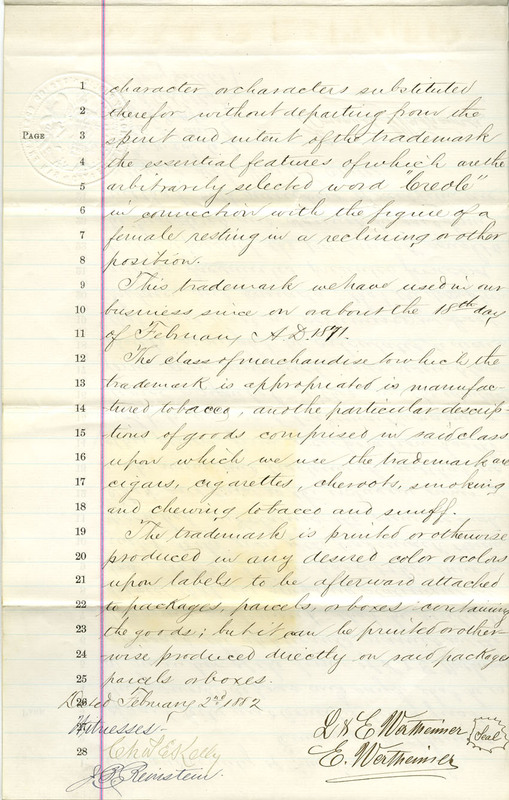 1 character or characters substituted
2 therefor without departing from the
PAGE 3 spirit and intent of the trademark
4 the essential features of which are the
5 arbitrarily selected word "Creole"
6 in connection with the figure of a
7 female resting in a reclining or other
8 position.
9 This trademark we have used in our
10 business since on or about the 18th day
11 of February A.D. 1871.
12 The class of merchandise to which the
13 trademark is appropriated is manufac-
14 tured tobacco, and the particular descrip-
15 tions of goods comprised in said class
16 upon which we use the trademark are
17 cigars, cigarettes, cheroots, smoking
18 and chewing tobacco and snuff.
19 The trademark is printed or otherwise
20 produced in any desired color or colors
21 upon labels to be afterward attached
22 to packages, parcels, or boxes containing
23 the goods; but it can be printed or other-
24 wise produced directly on said packages
25 parcels or boxes.
26 Dated February 2nd 1882
27 Witnesses-
L & E Wertheimer Seal
28 Chas E Kelly
E. Wertheimer
Reinstein.